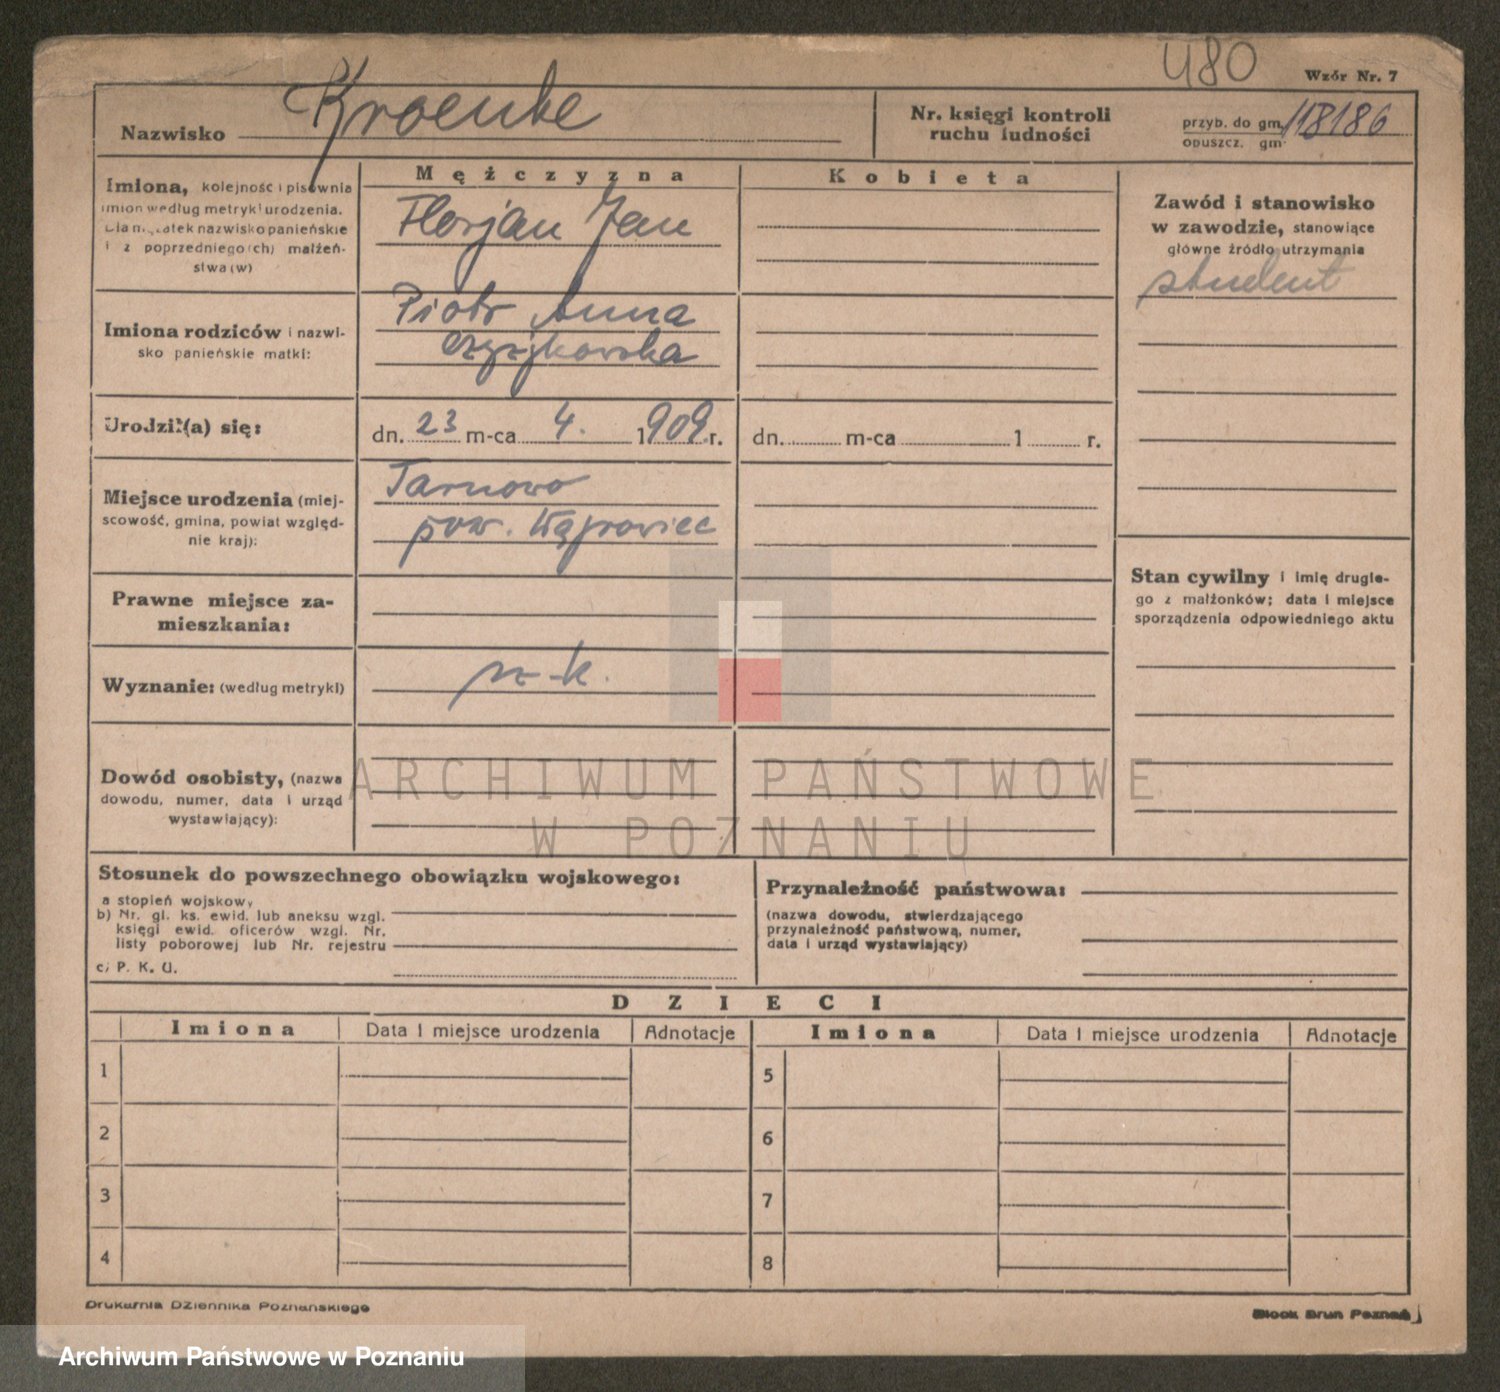 480
Wzór Nr. 7
Nazwisko Kroenke
Nr. księgi kontroli ruchu ludności
przyb. do gm. 118186
opuszcz. gm.
Mężczyzna
Kobieta
Imiona, kolejność i pisownia
imion według metryki urodzenia.
Dla mężatek nazwisko panieńskie
i z poprzedniego(ch) małżeń-
stwa(w)
Florjan Jan
Zawód i stanowisko
w zawodzie, stanowiące
główne źródło utrzymania
student
Imiona rodziców i nazwi-
sko panieńskie matki:
Piotr Anna
Czyżkowska
Urodził(a) się:
dn. 23 m-ca 4. 1909 r.
dn. m-ca 1 r.
Miejsce urodzenia (miej-
scowość, gmina, powiat względ-
nie kraj):
Tarnowo
pow. Wągrowiec
Stan cywilny i imię drugie-
go z małżonków; data i miejsce
sporządzenia odpowiedniego aktu
Prawne miejsce za-
mieszkania:
Wyznanie: (według metryki)
rz-k.
Dowód osobisty, (nazwa
dowodu, numer, data i urząd
wystawiający):
ARCHIWUM PAŃSTWOWE
W POZNANIU
Stosunek do powszechnego obowiązku wojskowego:
a stopień wojskowy
b) Nr. gl. ks. ewid. lub aneksu wzgl.
księgi ewid. oficerów wzgl. Nr.
listy poborowej lub Nr. rejestru
c) P. K. U.
Przynależność państwowa:
(nazwa dowodu, stwierdzającego
przynależność państwową, numer,
data i urząd wystawiający)
DZIECI
Imiona Data i miejsce urodzenia Adnotacje Imiona Data i miejsce urodzenia Adnotacje
1 5
2 6
3 7
4 8
Drukarnia Dziennika Poznańskiego
Block Brun Poznań
Archiwum Państwowe w Poznaniu